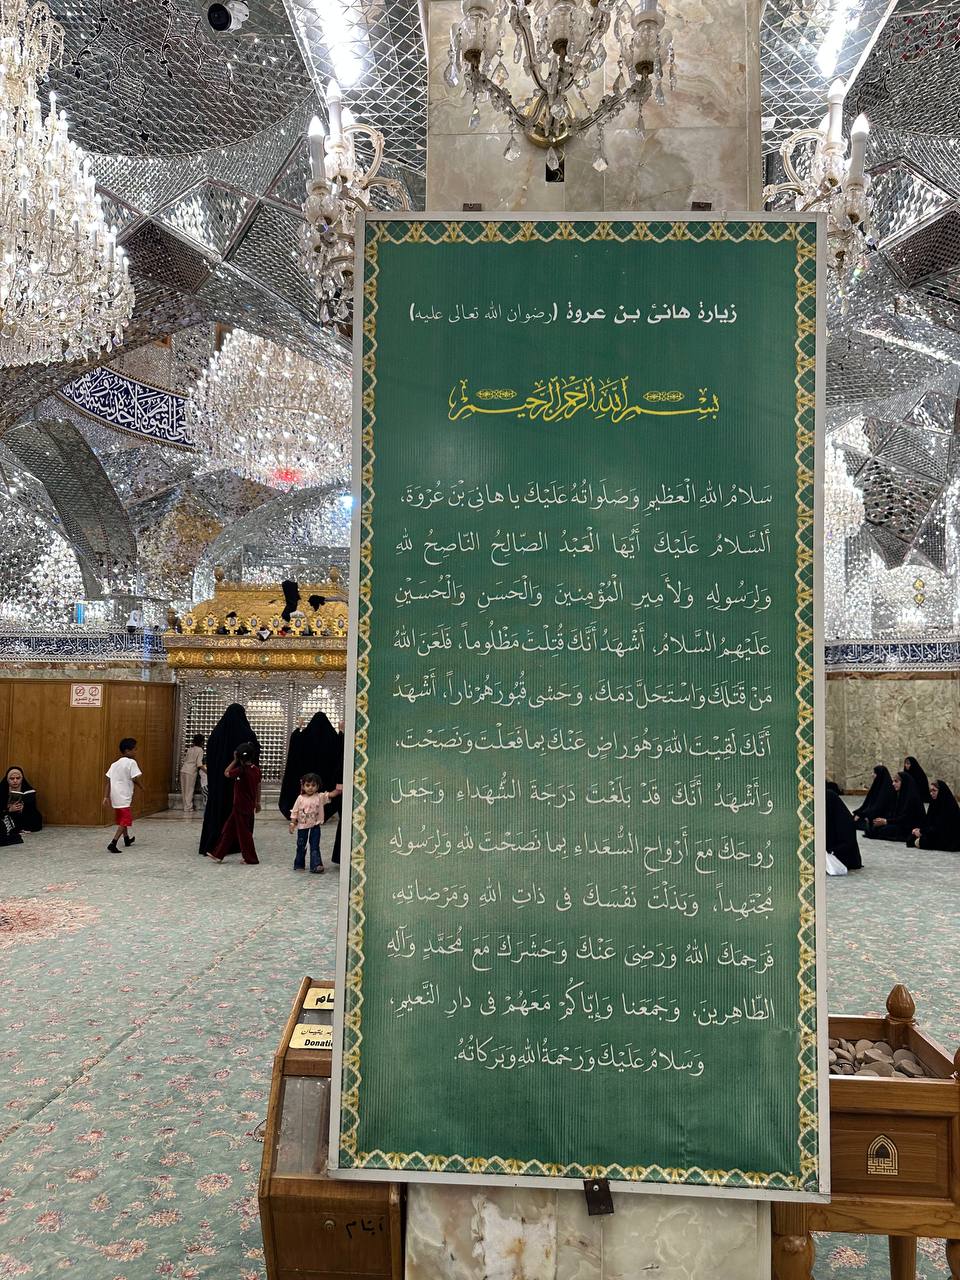 زيارة هانئ بن عروة (رضوان الله تعالى عليه)
بسم الله الرحمن الرحيم
سَلامُ اللهِ الْعَظيمِ وَصَلَواتُهُ عَلَيْكَ يا هانِیَ بْنَ عُرْوَةَ،
أَلسَّلامُ عَلَيْكَ أَيُّهَا الْعَبْدُ الصّالِحُ النّاصِحُ للهِ
وَلِرَسُولِهِ وَلأَميرِ الْمُؤْمِنينَ وَالْحَسَنِ وَالْحُسَيْنِ
عَلَيْهِمُ السَّلامُ، أَشْهَدُ أَنَّكَ قُتِلْتَ مَظْلُوماً، فَلَعَنَ اللهُ
مَنْ قَتَلَكَ وَاسْتَحَلَّ دَمَكَ، وَحَشى قُبُورَهُمْ ناراً، أَشْهَدُ
أَنَّكَ لَقِيْتَ اللهَ وَهُوَ راضٍ عَنْكَ بِما فَعَلْتَ وَنَصَحْتَ،
وَأَشْهَدُ أَنَّكَ قَدْ بَلَغْتَ دَرَجَةَ الشُّهَداءِ وَجَعَلَ
رُوحَكَ مَعَ أَرْواحِ السُّعَداءِ بِما نَصَحْتَ للهِ وَلِرَسُولِهِ
مُجْتَهِداً، وَبَذَلْتَ نَفْسَكَ فى ذاتِ اللهِ وَمَرْضاتِهِ،
فَرَحِمَكَ اللهُ وَرَضِىَ عَنْكَ وَحَشَرَكَ مَعَ مُحَمَّدٍ وَآلِهِ
الطّاهِرينَ، وَجَمَعَنا وَإِيّاكُمْ مَعَهُمْ فى دارِ النَّعيمِ،
وَسَلامٌ عَلَيْكَ وَرَحْمَةُ اللهِ وَبَرَكاتُهُ.
Donatio